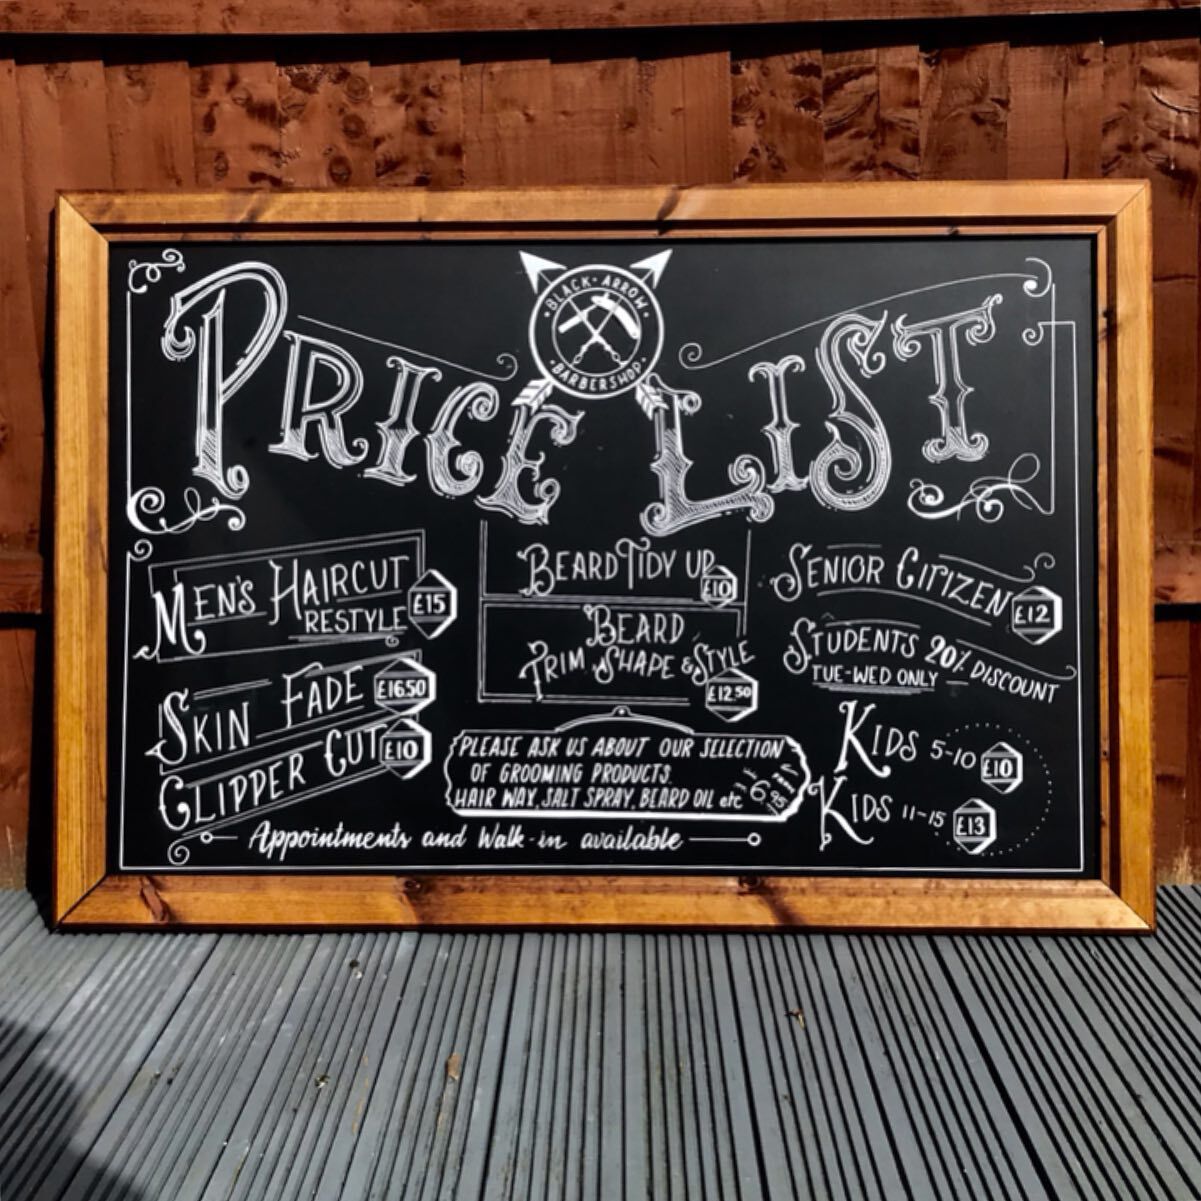 BLACK · ARROW
BARBERSHOP
PRICE LIST
MEN'S HAIRCUT
RESTYLE
£15
SKIN FADE £16.50
CLIPPER CUT £10
BEARD TIDY UP
£10
BEARD
TRIM, SHAPE & STYLE
£12.50
PLEASE ASK US ABOUT OUR SELECTION
OF GROOMING PRODUCTS.
HAIR WAX, SALT SPRAY, BEARD OIL etc
6.95
SENIOR CITIZEN £12
STUDENTS 20% DISCOUNT
TUE-WED ONLY
KIDS 5-10 £10
KIDS 11-15 £13
Appointments and Walk-in available